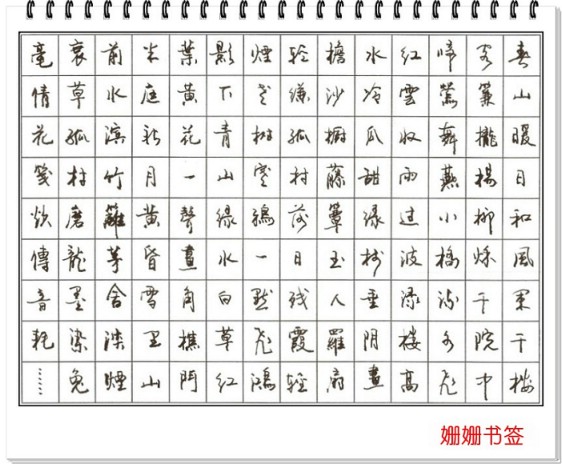 春山暖日和風闌干樓
閣簾櫳楊柳鞦千院中
啼鶯舞燕小橋流水飛
紅雲收雨過波添樓高
水冷瓜甜緑樹陰垂畫
檐沙櫥藤簟玉人羅扇
輕縑孤村落日殘霞輕
煙老樹寒鴉一點飛鴻
影下青山緑水白草紅
葉黄花一聲畫角樵門
半庭新月黄昏雪里山
前水濱竹籬茅舍淡煙
衰草孤村磨龍墨染兔
毫倩花箋欲傳音耗……
姗姗书签